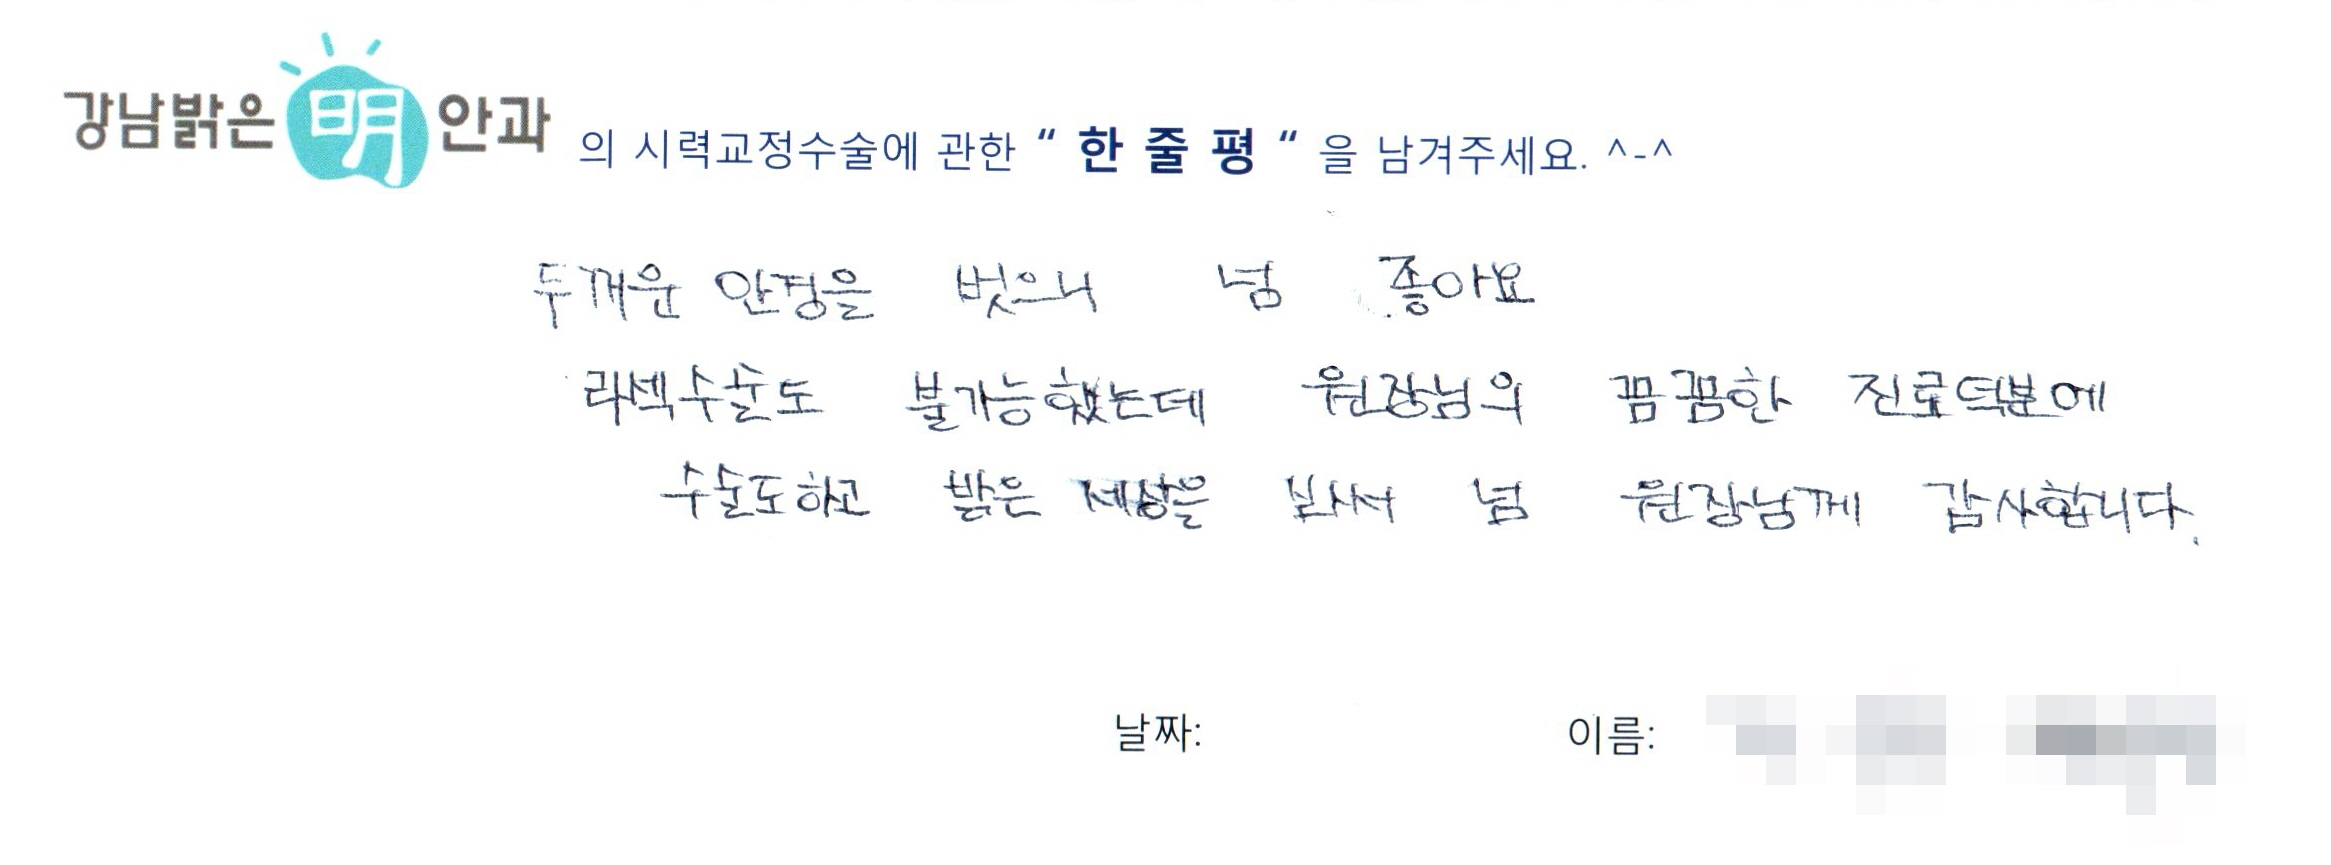 강남밝은 明 안과 의 시력교정수술에 관한 “ 한 줄 평 “ 을 남겨주세요. ^-^
두꺼운 안경을 벗으니 넘 좋아요
라섹수술도 불가능했는데 원장님의 꼼꼼한 진료덕분에
수술도하고 밝은 세상을 봐서 넘 원장님께 감사합니다.
날짜: 이름: